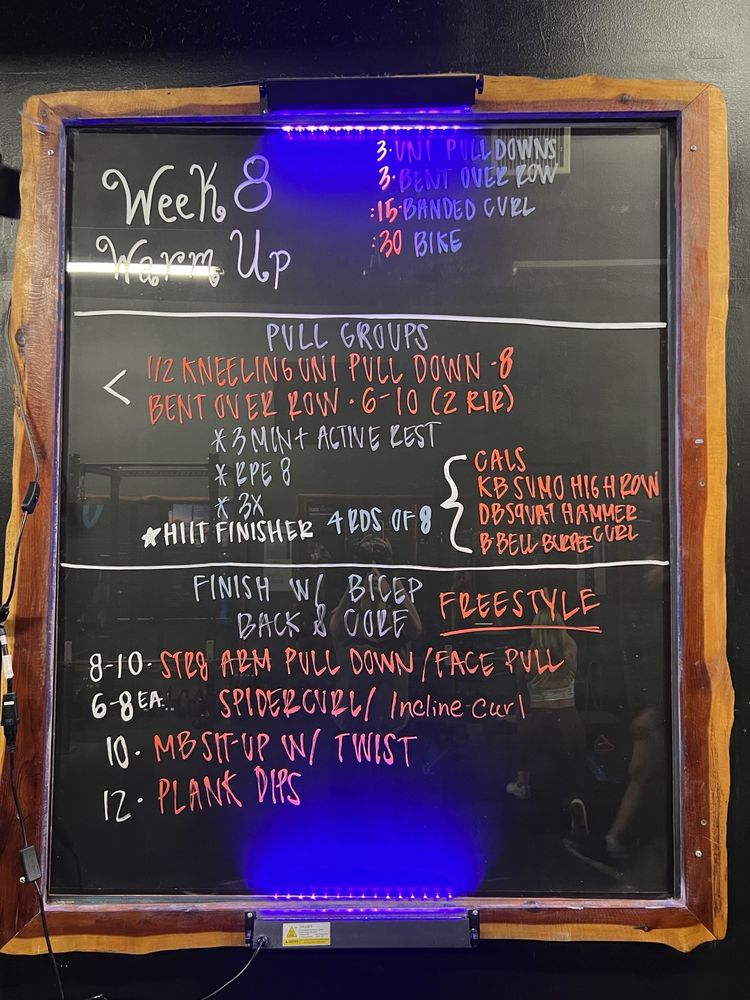 Week 8
Warm Up
3·UNI PULLDOWNS
3·BENT OVER ROW
:15·BANDED CURL
:30 BIKE
PULL GROUPS
< 1/2 KNEELING UNI PULL DOWN -8
BENT OVER ROW · 6-10 (2 RIR)
*3 MIN+ ACTIVE REST
*RPE 8
*3X
★HIIT FINISHER 4 RDS OF 8
{ CALS
KB SUMO HIGH ROW
DB SQUAT HAMMER
CURL
B·BELL BURPEE
FINISH W/ BICEP
BACK & CORE FREESTYLE
8-10· STR8 ARM PULL DOWN / FACE PULL
6-8 EA. SPIDERCURL/ Incline-curl
10· MB SIT-UP W/ TWIST
12· PLANK DIPS